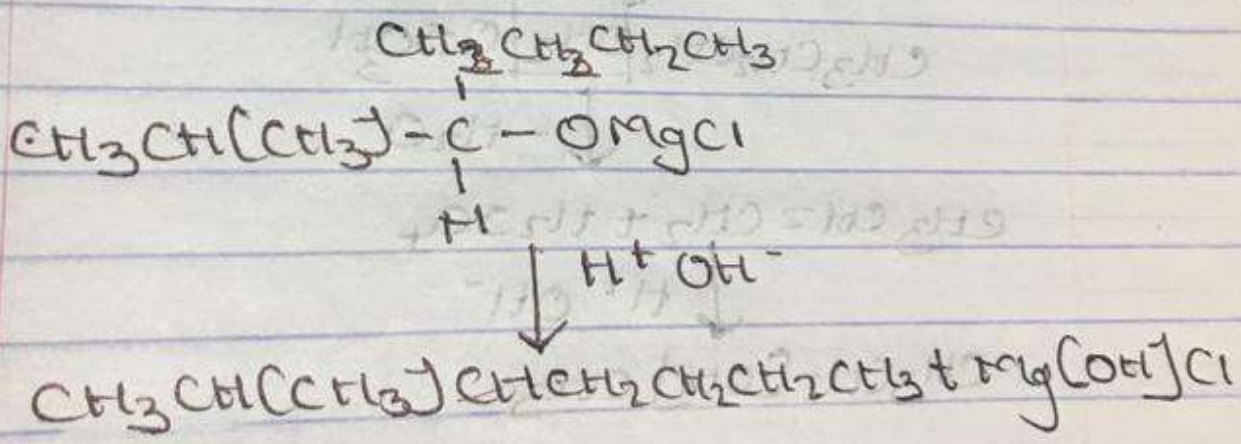 CH₂CH₂CH₂CH₃
CH₃CH(CH₃)-C-OMgCl
H
H⁺ OH⁻
CH₃CH(CH₃)CHCH₂CH₂CH₂CH₃ + Mg(OH)Cl